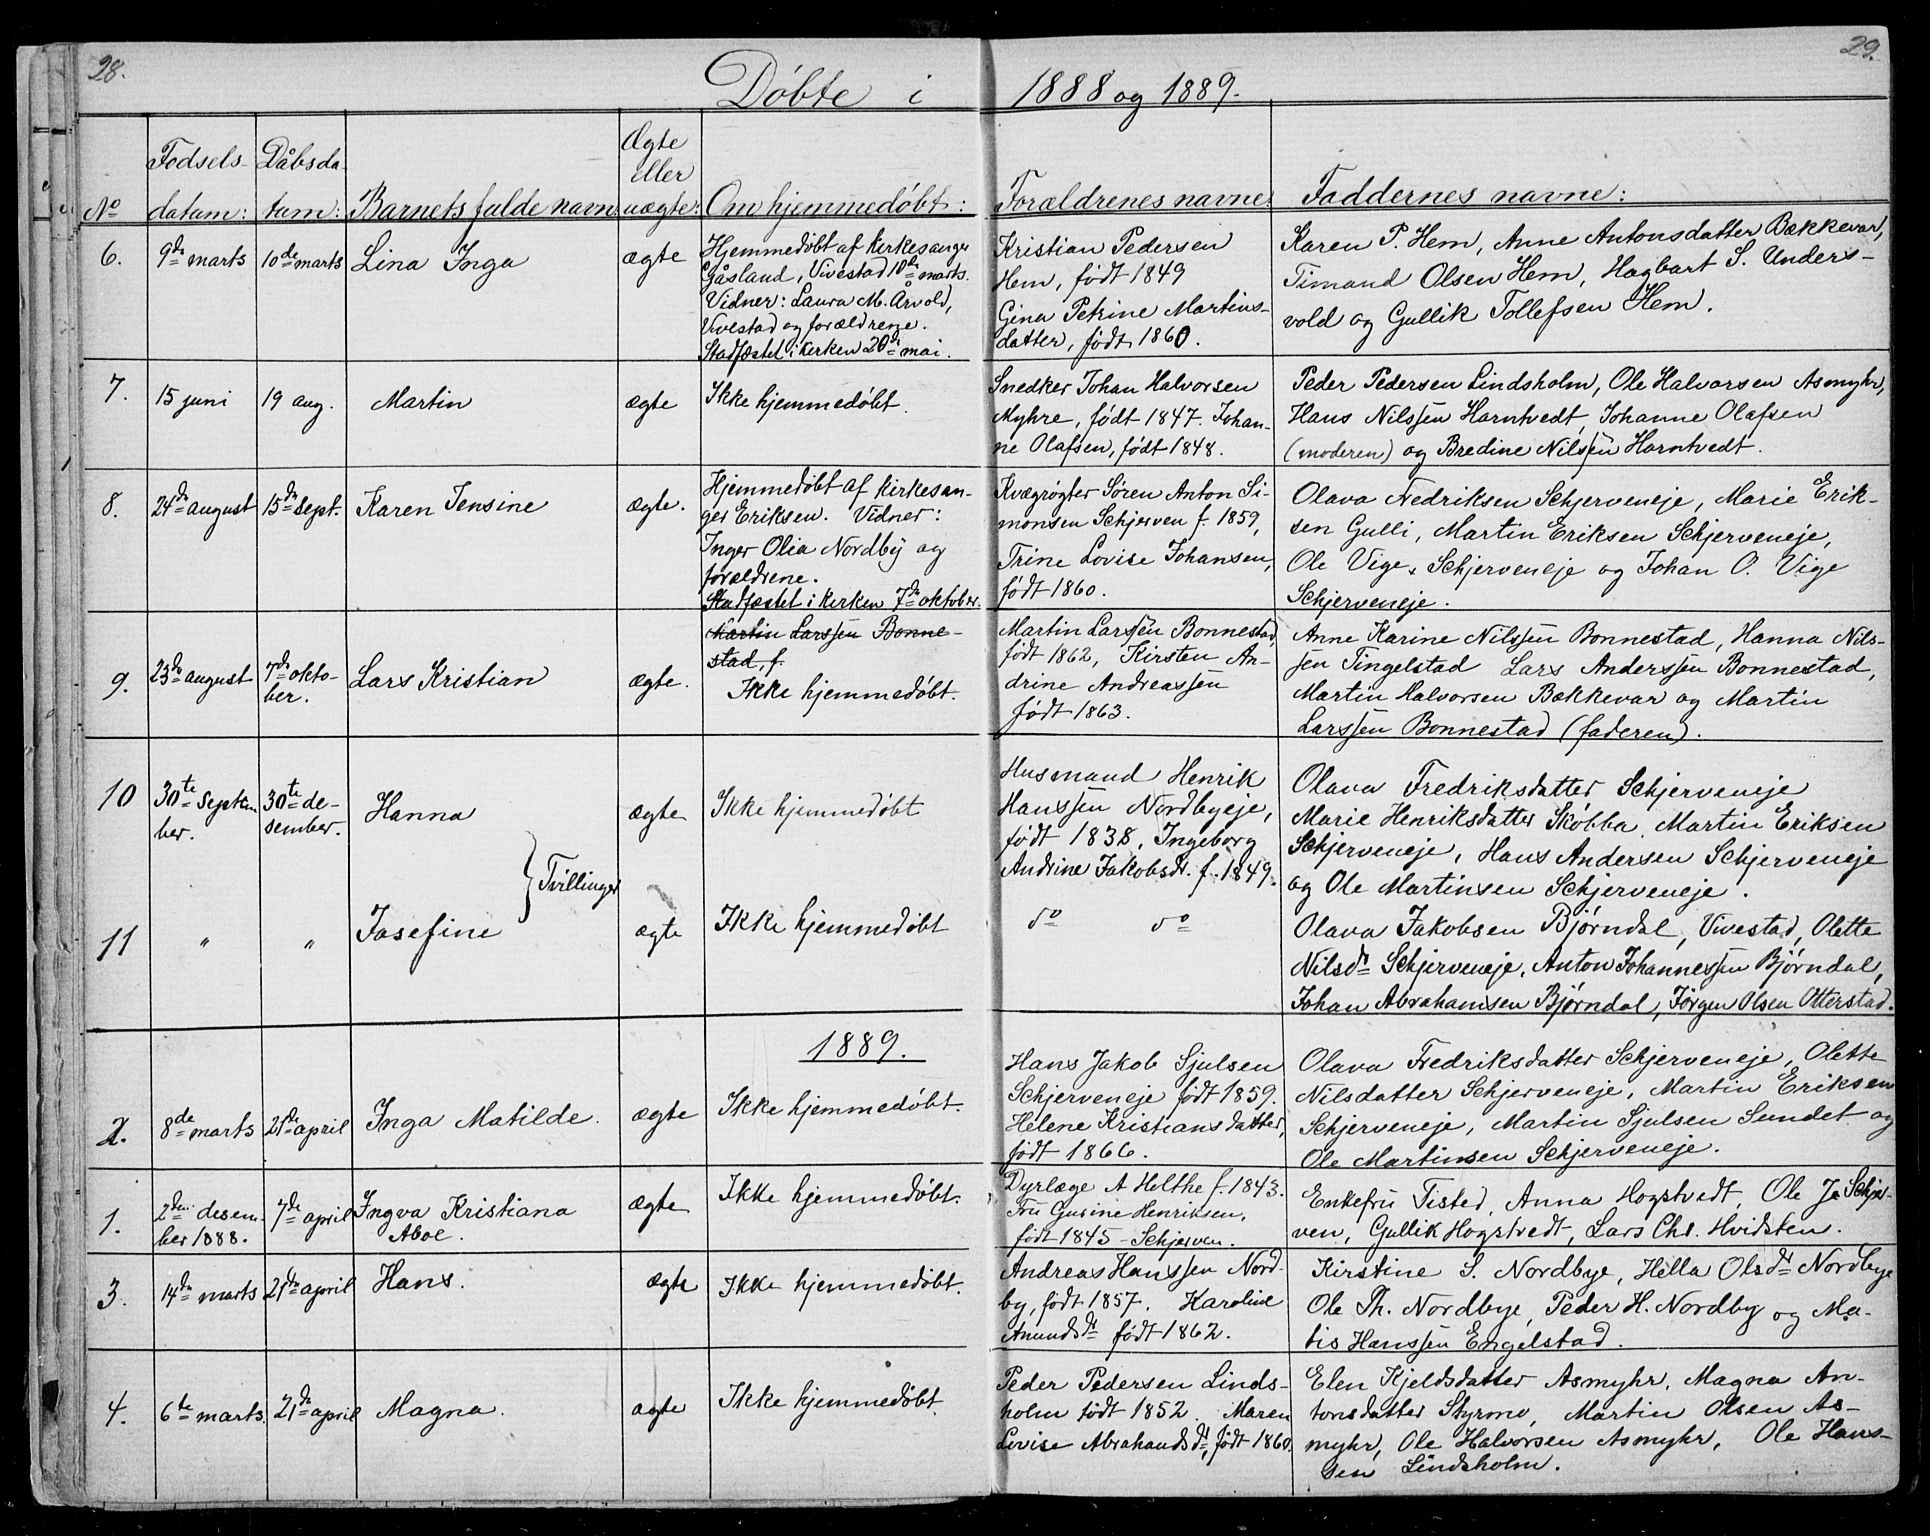 28.
29.
Döbte i 1888 og 1889.
No
Fodsels-
datum:
Dåbsda-
tum:
Barnets fulde navn
Ægte
eller
uægte:
Om hjemmedøbt:
Forældrenes navne
Faddernes navne:
6.
9de marts
10de marts
Lina Inga
ægte
Hjemmedøbt af Kirkesanger
Gåsland, Vivestad 10de marts.
Vidner: Laura M. Årvold,
Vivestad og forældrene.
Stadfæstet i kirken 20de mai.
Kristian Pedersen
Hem, født 1849
Gina Petrine Martins-
datter, født 1860.
Karen P. Hem, Anne Antonsdatter Bækkevar,
Timand Olsen Hem, Hagbart S. Unders-
vold og Gullik Tollefsen Hem.
7.
15 juni
19 aug.
Martin
ægte
Ikke hjemmedøbt.
Snedker Johan Halvorsen
Myhre, født 1847. Johan-
ne Olafsen, født 1848.
Peder Pedersen Lindsholm, Ole Halvorsen Asmyhr,
Hans Nilssen Harntvedt, Johanne Olafsen
(moderen) og Bredine Nilssen Harntvedt.
8.
24de august
15de sept.
Karen Jensine
ægte.
Hjemmedøbt af kirkesan-
ger Eriksen. Vidner:
Inger Olia Nordby og
forældrene.
Stadfæstet i kirken 7de oktober.
Kvægrøgter Søren Anton Si-
monsen Schjerven f. 1859,
Trine Lovise Johansen,
født 1860.
Olava Nedriksen Schjerveneje, Marie Erik-
sen Gulli, Martin Eriksen Schjerveneje,
Ole Vige, Schjerveneje og Johan O. Vige
Schjerveneje.
9.
23de august
7de okto-
ber.
Lars Kristian
ægte.
Martin Larssen Bonne-
stad, f.
Ikke hjemmedøbt.
Martin Larssen Bonnestad,
født 1862, Kirsten An-
drine Andreassen
født 1863.
Anne Karine Nilssen Bonnestad, Hanna Nils-
sen Tingelstad Lars Anderssen Bonnestad,
Martin Halvorsen Bækkevar og Martin
Larssen Bonnestad (faderen).
10
30te septem
ber.
30te de-
sember.
Hanna
ægte
Ikke hjemmedøbt
Husmand Henrik
Hanssen Nordbyeje,
født 1838, Ingeborg
Andrine Jakobsdr. f. 1849.
Olava Fredriksdatter Schjerveneje
Marie Henriksdatter Skobba, Martin Eriksen
Schjerveneje, Hans Andersen Schjerveneje
og Ole Martinsen Schjerveneje.
Tvillinger
11
"
"
Josefine
ægte
Ikke hjemmedøbt
do do
Olava Jakobsen Bjørndal, Vivestad, Olette
Nilsdr Schjerveneje, Anton Johannessen Bjørndal,
Johan Abrahamsen Bjørndal, Jørgen Olsen Otterstad.
1889.
2.
8de marts
21de april
Inga Matilde.
ægte
Ikke hjemmedøbt.
Hans Jakob Sjulsen
Schjerveneje født 1859.
Helene Kristiansdatter,
født 1866.
Olava Fredriksdatter Schjerveneje, Olette
Nilsdatter Schjerveneje, Martin Eriksen
Schjerveneje, Martin Sjulsen Sundet og
Ole Martinsen Schjerveneje.
1.
2den desem-
ber 1888.
7de april
Ingva Kristiana
Aboe.
ægte
Ikke hjemmedøbt.
Dyrlæge A Helthe f. 1843.
Fru Gusine Henriksen,
født 1845 - Schjerven.
Enkefru Tisted, Anna Hogstvedt, Ole Ja Schjer-
ven, Gullik Hogstvedt, Lars Chr. Hvidsten.
3.
14de marts
21de april
Hans.
ægte
Ikke hjemmedøbt.
Andreas Hanssen Nord-
by, født 1857. Karoline
Amundsdr født 1862.
Kirstine S. Nordbye, Hella Olsdr Nordbye
Ole Th. Nordbye, Peder H. Nordby og Ma-
tis Hanssen Engelstad.
4.
6te marts.
21de april
Magna.
ægte
Ikke hjemmedøbt.
Peder Pedersen Linds-
holm født 1852. Maren
Lovise Abrahamsdr, født 1860.
Elen Kjeldsdatter Asmyhr, Magna An-
tonsdatter Styrmo, Martin Olsen As-
myhr, Ole Halvorsen Asmyhr, Ole Hans-
sen Lindsholm.